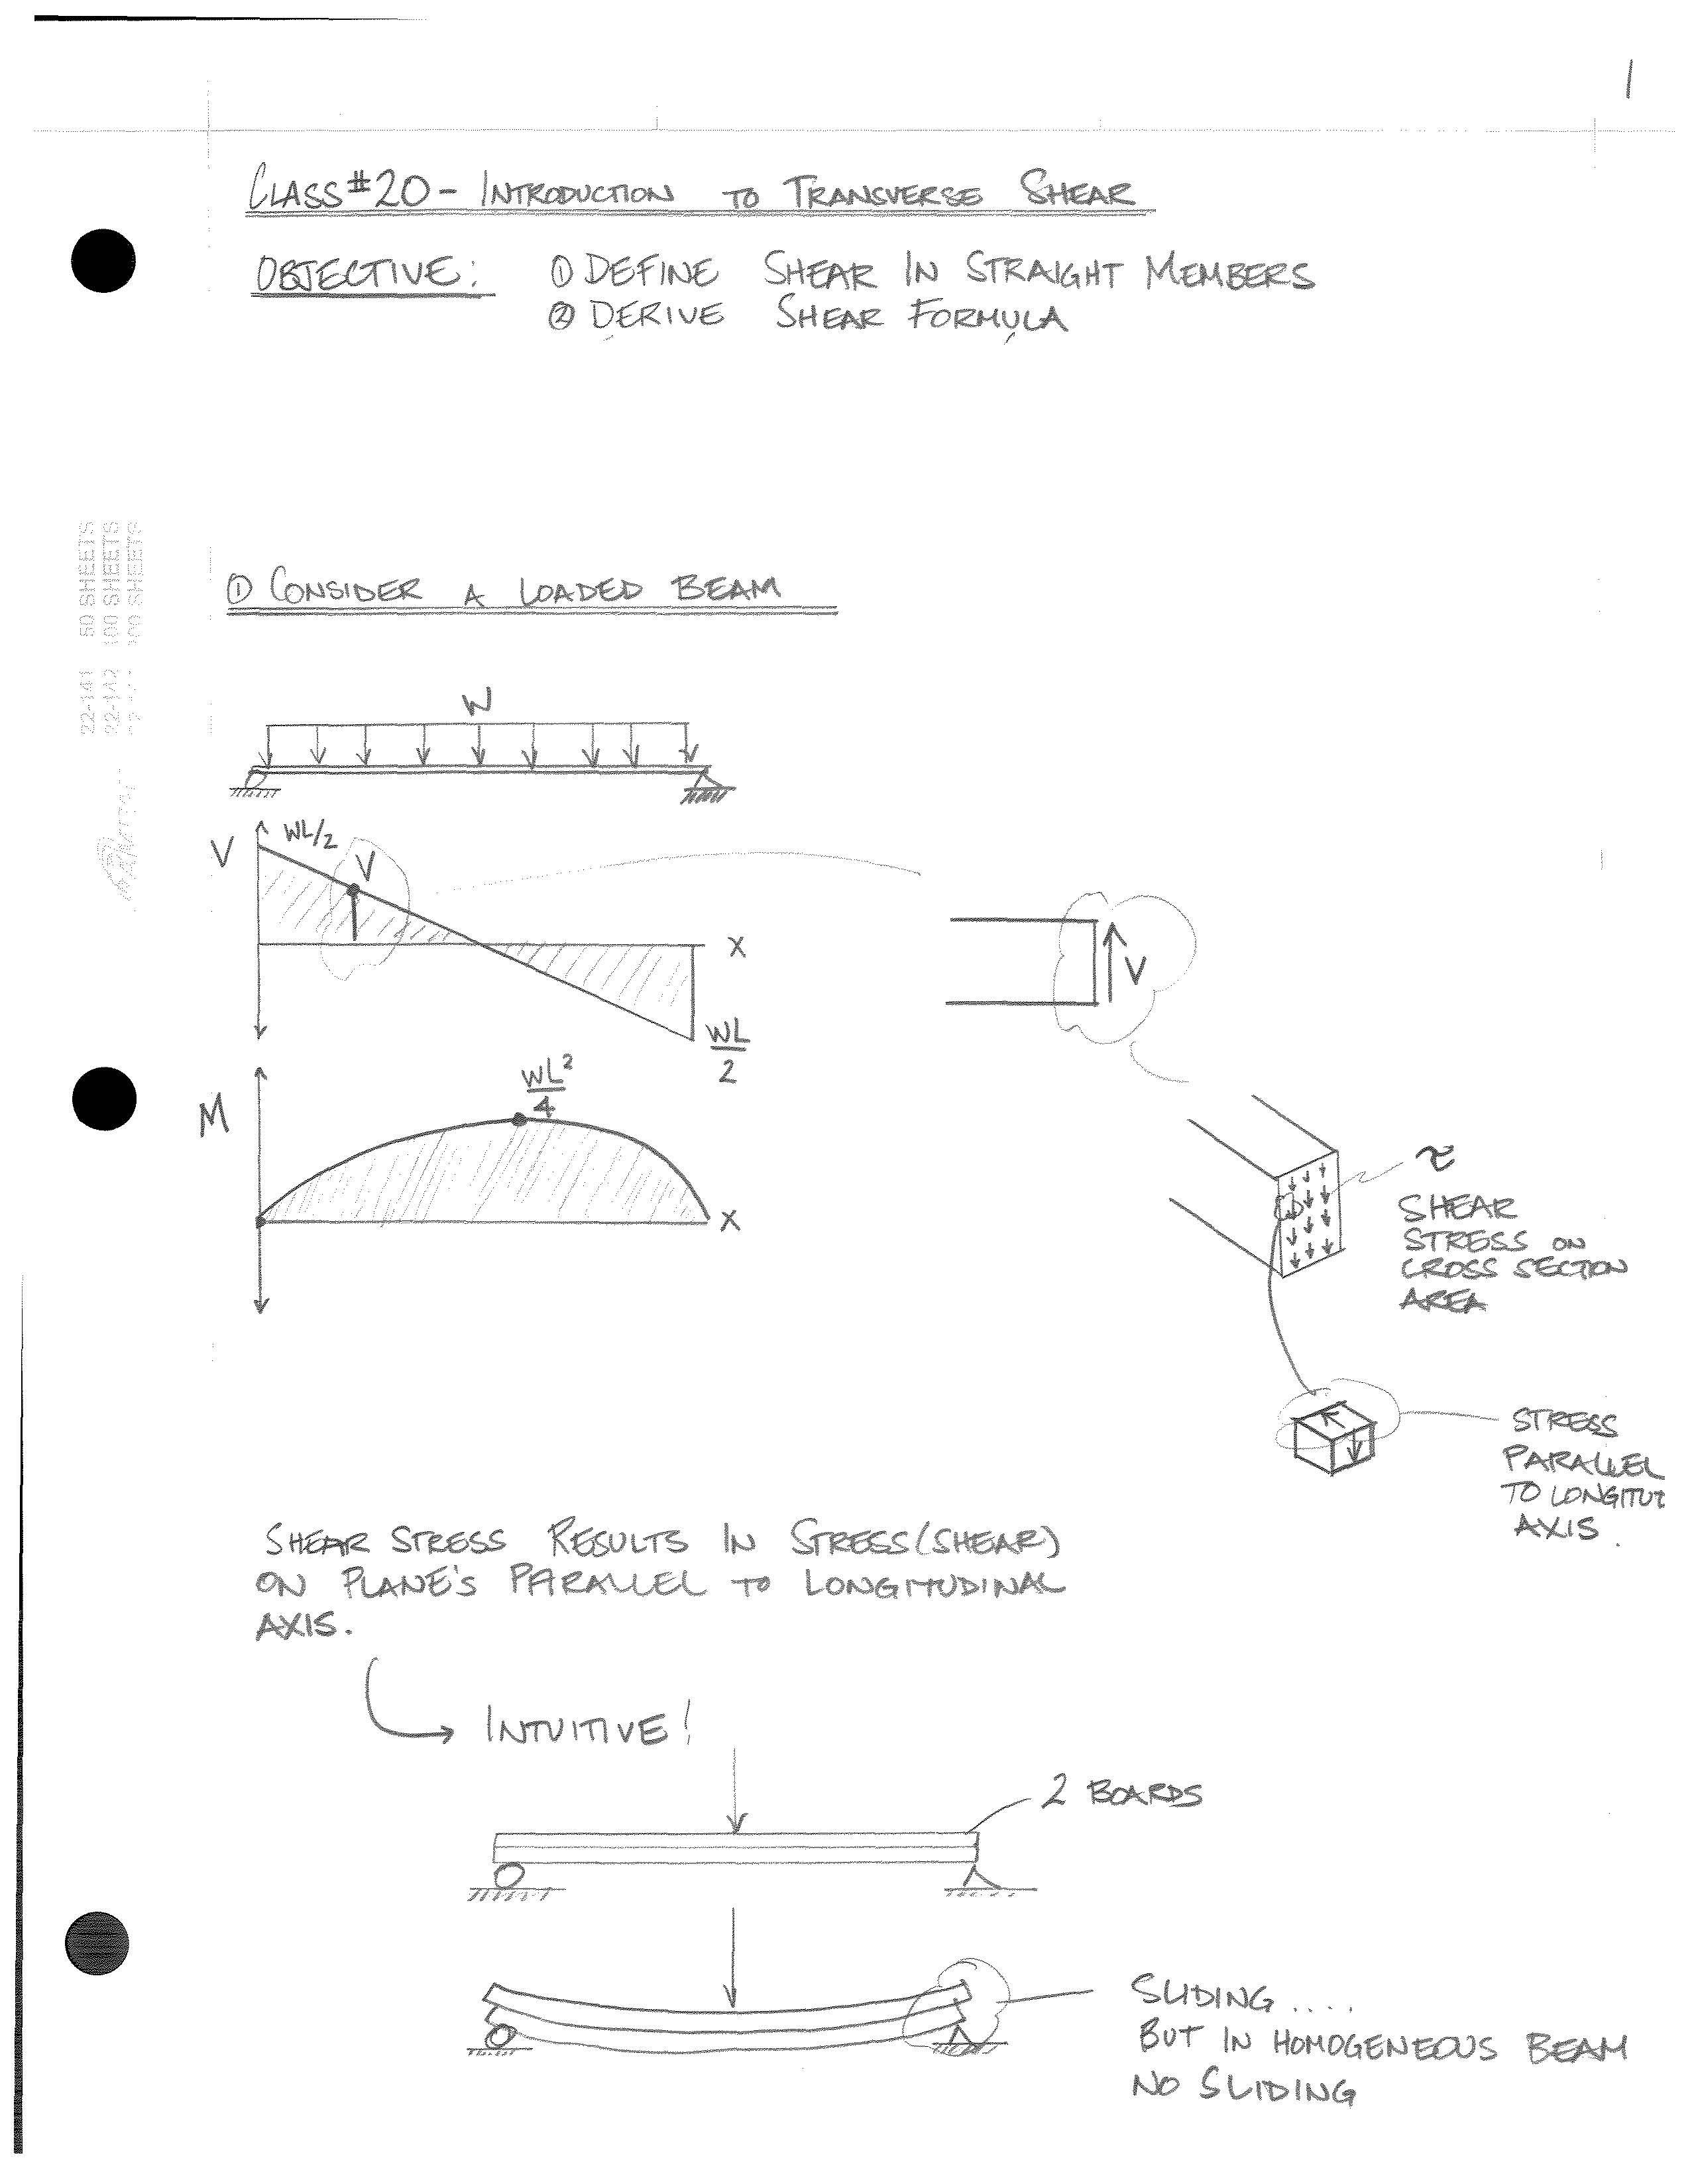 1
CLASS #20 - INTRODUCTION TO TRANSVERSE SHEAR
OBJECTIVE: ① DEFINE SHEAR IN STRAIGHT MEMBERS
② DERIVE SHEAR FORMULA
50 SHEETS
100 SHEETS
SHEETS
22-141
22-142
① CONSIDER A LOADED BEAM
W
V
WL/2
V
X
WL/2
V
M
WL²/4
X
τ
SHEAR
STRESS ON
CROSS SECTION
AREA
STRESS
PARALLEL
TO LONGITUD
AXIS.
SHEAR STRESS RESULTS IN STRESS (SHEAR)
ON PLANE'S PARALLEL TO LONGITUDINAL
AXIS.
INTUITIVE!
2 BOARDS
SLIDING ....
BUT IN HOMOGENEOUS BEAM
NO SLIDING